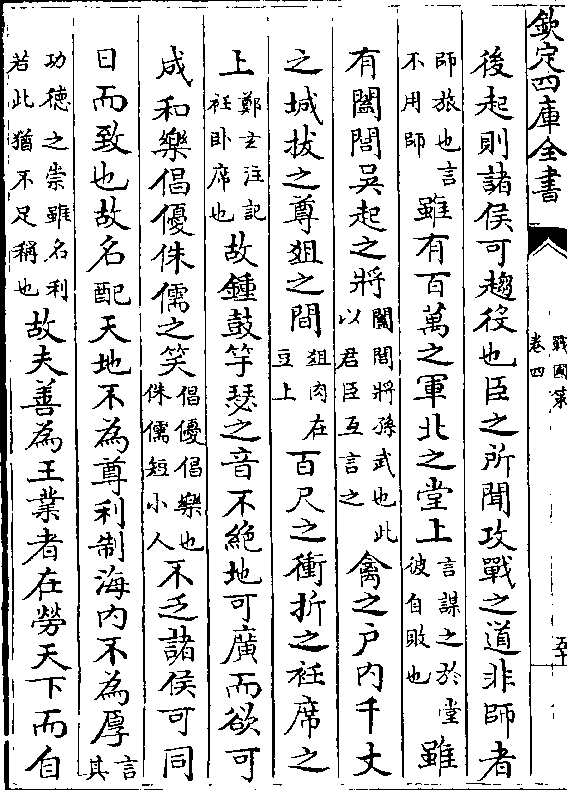 欽定四庫全書
戰國策
卷四
五十
後起則諸侯可趨役也臣之所聞攻戰之道非師者
師旅也言不用師雖有百萬之軍北之堂上言謀之於堂彼自敗也雖
有闔閭吳起之將闔閭將孫武也此以君臣互言之禽之户内千丈
之城拔之尊俎之間俎肉在豆上百尺之衝折之衽席之
上鄭玄注記衽卧席也故鍾鼓竽瑟之音不絶地可廣而欲可
成和樂倡優侏儒之笑倡優倡樂也侏儒短小人不乏諸侯可同
日而致也故名配天地不為尊利制海内不為厚言其
功德之崇雖名利若此猶不足稱也故夫善為王業者在勞天下而自